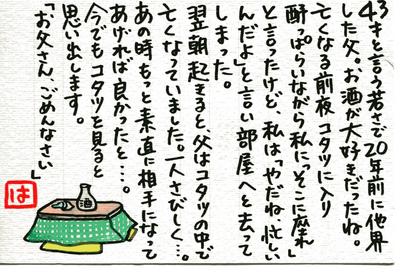 43才と言う若さで20年前に他界
した父。お酒が大好きだったね。
亡くなる前夜コタツに入り
酔っぱらいながら私に「そこに座れ」
と言ったけど、私は「やだね、忙しい
んだよ」と言い部屋へと去って
しまった。
翌朝起きると、父はコタツの中で
亡くなっていました。一人さびしく…。
あの時もっと素直に相手になって
あげれば良かったと…。
今でもコタツを見ると
思い出します。
「お父さん、ごめんなさい」
は
酒